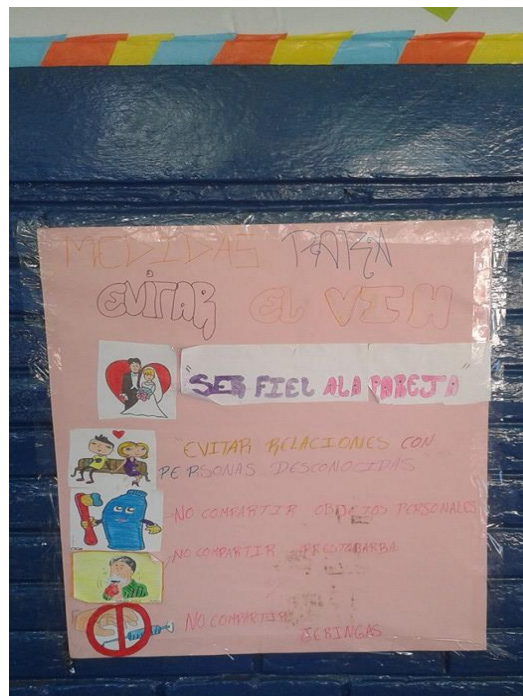 MEDIDAS PARA
EVITAR EL VIH
"SER FIEL A LA PAREJA"
"EVITAR RELACIONES CON
PERSONAS DESCONOCIDAS
NO COMPARTIR OBJETOS PERSONALES
NO COMPARTIR PRESTOBARBA
NO COMPARTIR
JERINGAS